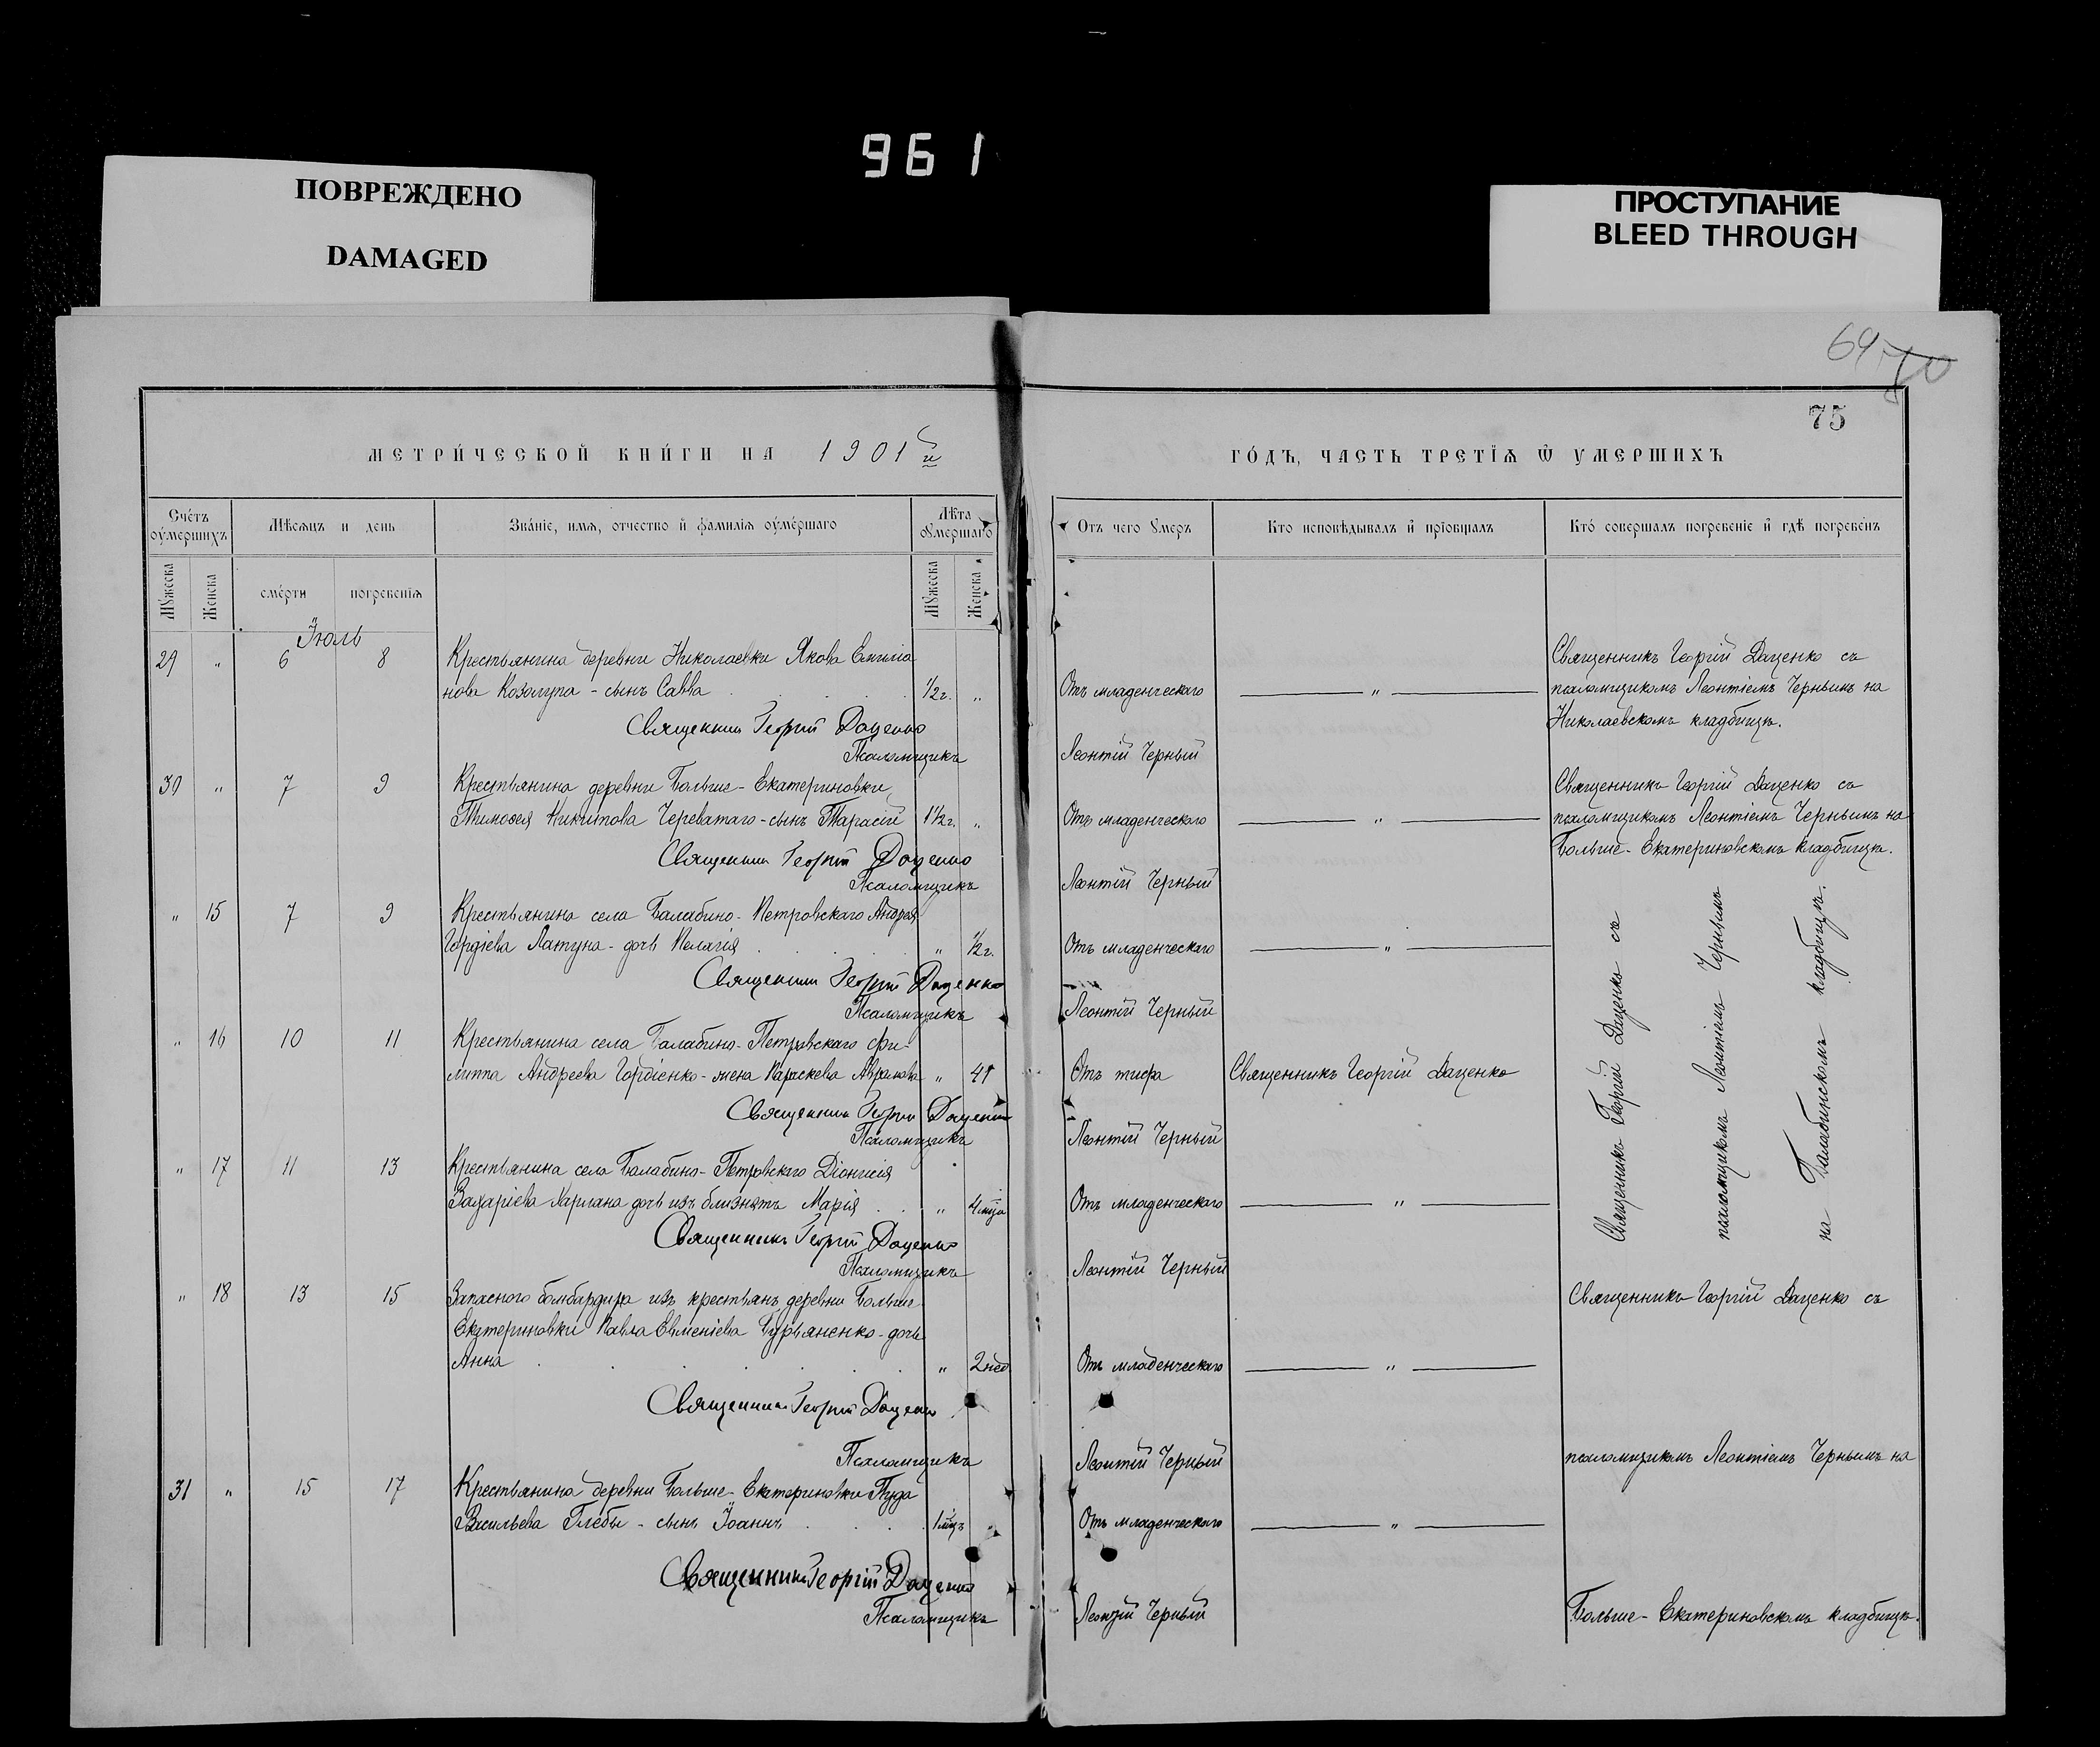 961
ПОВРЕЖДЕНО
DAMAGED
ПРОСТУПАНИЕ
BLEED THROUGH
69 70
75
МЕТРИ́ЧЕСКОЙ КНИ́ГИ НА 1901й
ГО́ДЪ, ЧАСТЬ ТРЕТІѦ Ѿ УМЕРШИХЪ
Сче́тъ оу҆ме́ршихъ
Мѣсѧцъ и день
Зва́нїе, имѧ, отчество и҆ фамилїѧ оу҆ме́ршаго
Лѣта оумершаго
Отъ чего оумеръ
Кто исповѣдывалъ и҆ прїобщалъ
Кто́ совершалъ погребенїе и҆ гдѣ погребе́нъ
Мꙋжеска
Женска
сме́рти
погребенїѧ
Мꙋжеска
Женска
Іюль
29 " 6 8 Крестьянина деревни Николаевки Якова Емилiа-
нова Козолупа - сынъ Савва 1/2 г. " Отъ младенческаго "
Священникъ Георгій Даценко съ
псаломщикомъ Леонтіемъ Чернымъ на
Николаевскомъ кладбищѣ.
Священникъ Георгій Даценко
Псаломщикъ Леонтій Черный
30 " 7 9 Крестьянина деревни Больше-Екатериновки
Тимоѳея Никитова Череватаго - сынъ Тарасій 1 1/2 г. " Отъ младенческаго "
Священникъ Георгій Даценко съ
псаломщикомъ Леонтіемъ Чернымъ на
Больше-Екатериновскомъ кладбищѣ.
Священникъ Георгій Даценко
Псаломщикъ Леонтій Черный
" 15 7 9 Крестьянина села Балабино-Петровскаго Андрея
Гордіева Латуна - дочь Пелагія " 1/2 г. Отъ младенческаго "
Священникъ Георгій Даценко
Псаломщикъ Леонтій Черный
" 16 10 11 Крестьянина села Балабино-Петровскаго Фи-
липпа Андреева Гордіенко - жена Параскева Аврамова " 41 Отъ тифа Священникъ Георгій Даценко
Священникъ Георгій Даценко
Псаломщикъ Леонтій Черный
" 17 11 13 Крестьянина села Балабино-Петровскаго Діонисія
Захаріева Каргана дочь изъ близнятъ Марія " 4 мѣца Отъ младенческаго "
Священникъ Георгій Даценко
Псаломщикъ Леонтій Черный
Священникъ Георгій Даценко съ
псаломщикомъ Леонтіемъ Чернымъ
на Балабинскомъ кладбищѣ.
" 18 13 15 Запаснаго бомбардира изъ крестьянъ деревни Больше-
Екатериновки Павла Евменіева Бурьяненко - дочь
Анна " 2 нед Отъ младенческаго "
Священникъ Георгій Даценко
Псаломщикъ Леонтій Черный
31 " 15 17 Крестьянина деревни Больше-Екатериновки Пуда
Васильева Глебы - сынъ Іоаннъ 1 мѣцъ " Отъ младенческаго "
Священникъ Георгій Даценко
Псаломщикъ Леонтій Черный
Священникъ Георгій Даценко съ
псаломщикомъ Леонтіемъ Чернымъ на
Больше-Екатериновскомъ кладбищѣ.